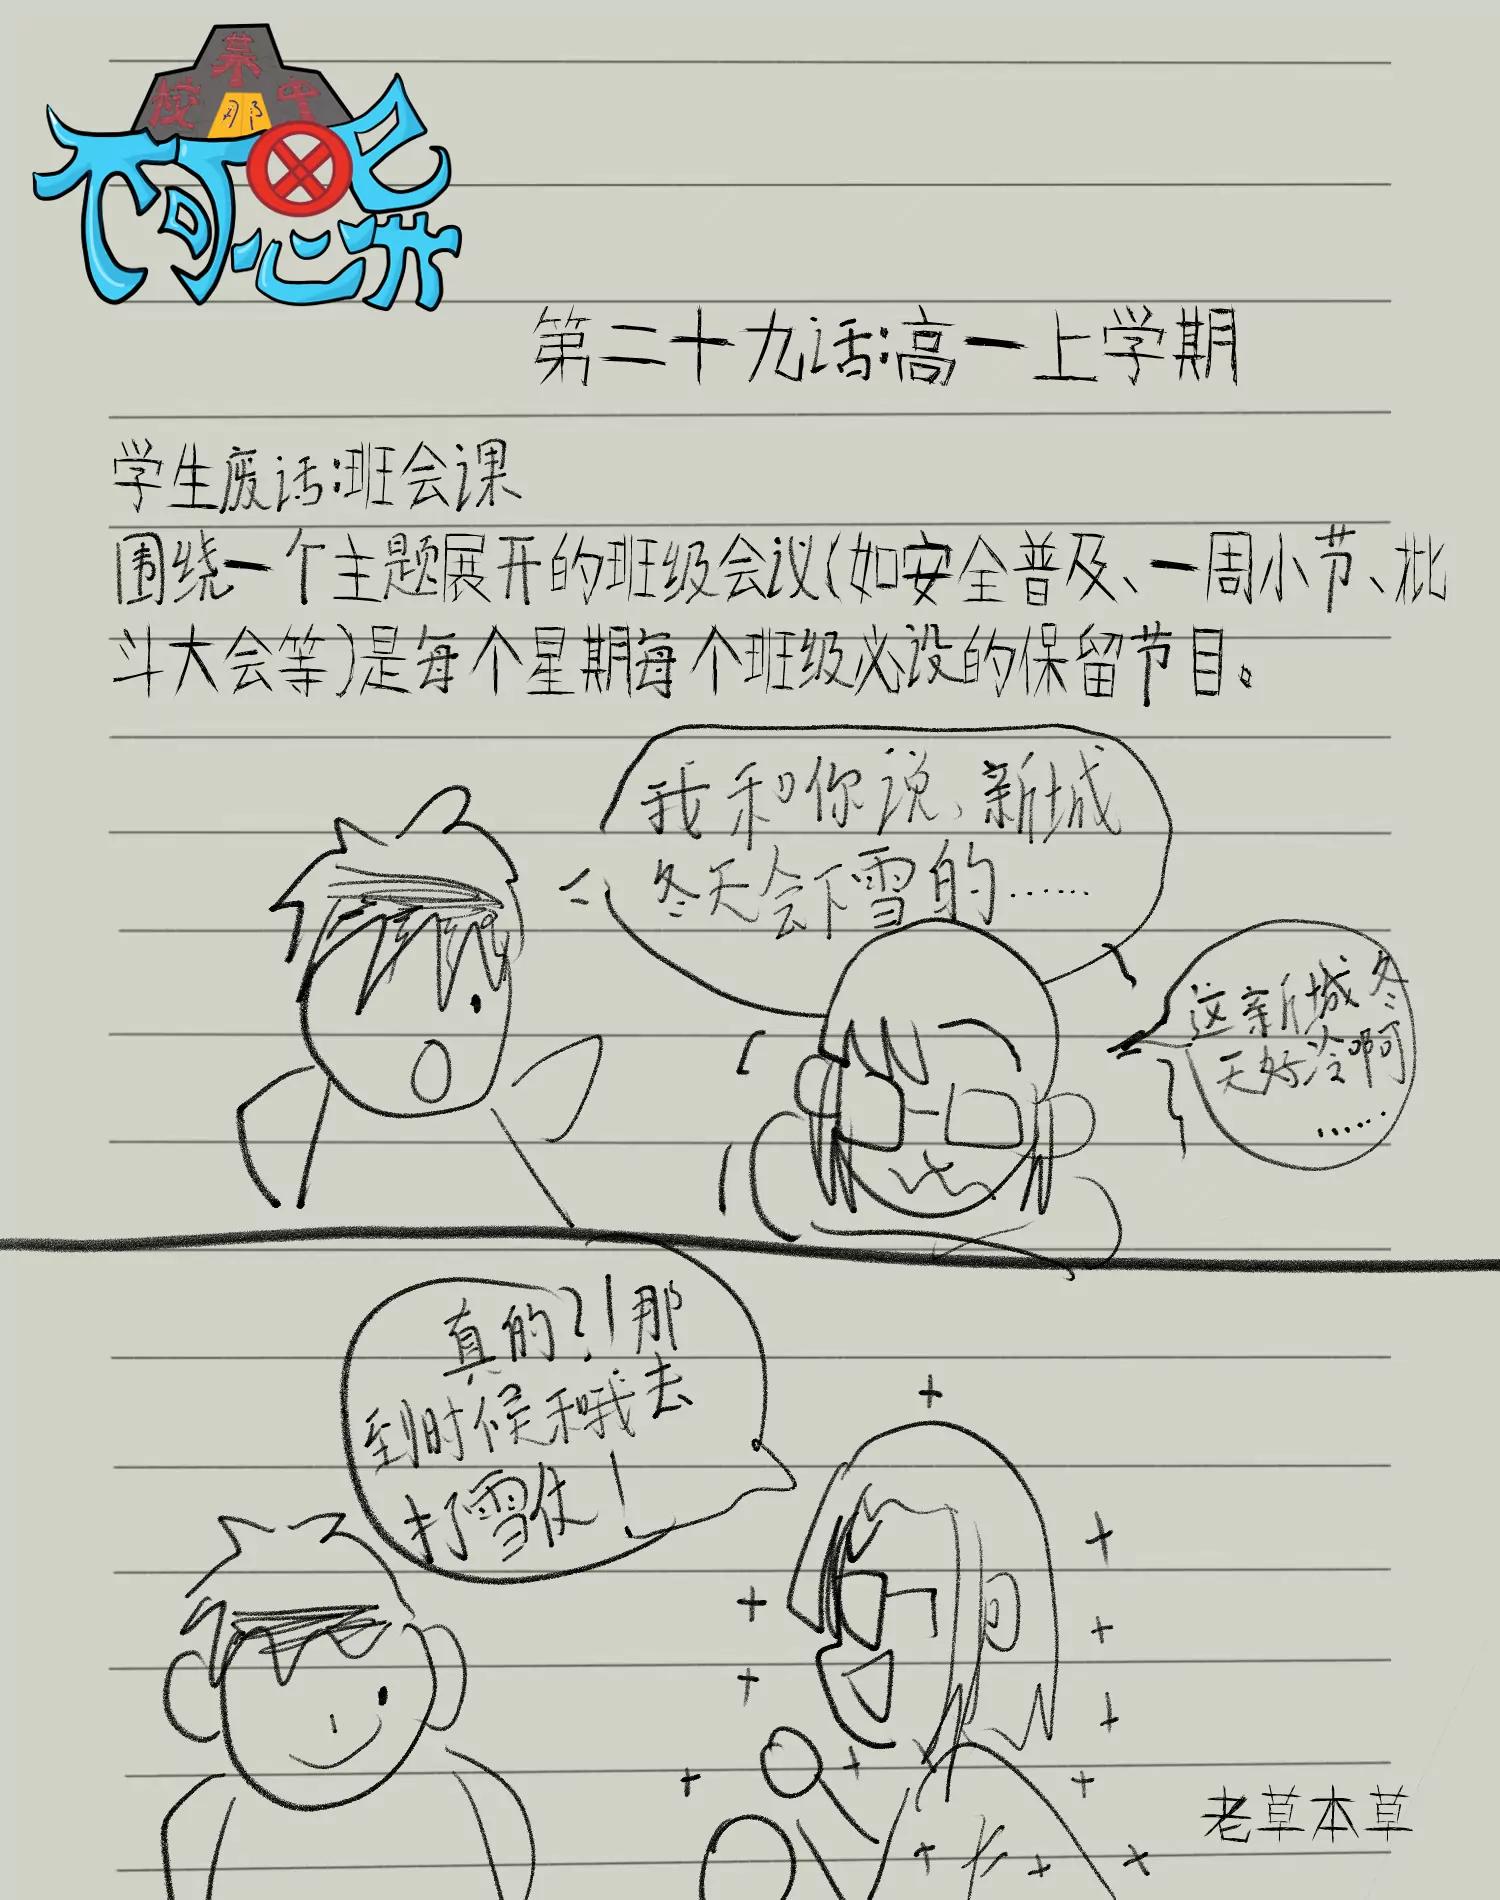 某
校 那
不可忌
第二十九话:高一上学期
学生废话:班会课
围绕一个主题展开的班级会议(如安全普及、一周小节、批
斗大会等)是每个星期每个班级必设的保留节目。
我和你说、新城
冬天会下雪的……
这新城冬
天好冷啊
……
真的?!那
到时候和哦去
打雪仗!
老草本草